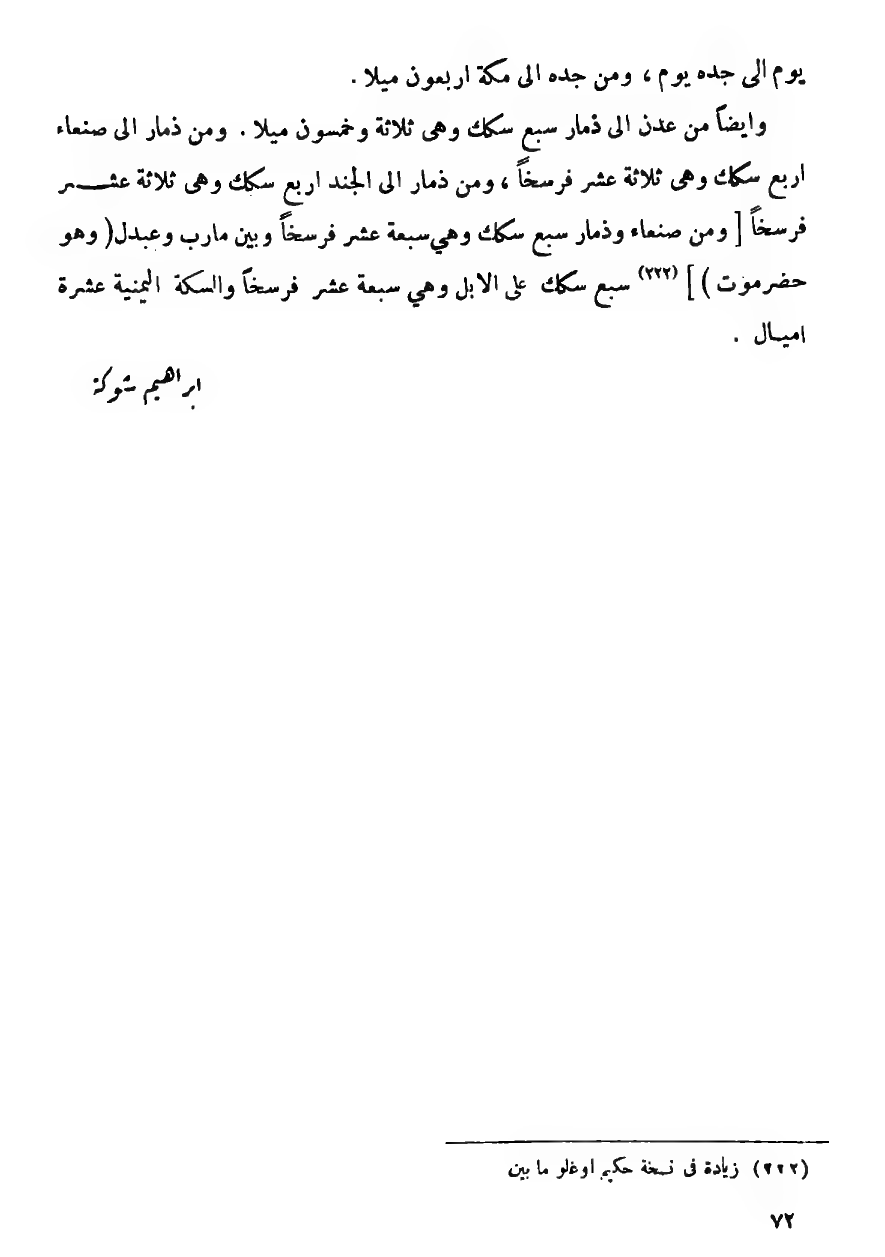 يوم الى جده يوم ، ومن جده الى مكة اربعون ميلا .
وايضاً من عدن الى ذمار سبع سكك وهى ثلاثة وخمسون ميلا . ومن ذمار الى صنعاء
اربع سكك وهى ثلاثة عشر فرسخاً ، ومن ذمار الى الجند اربع سكك وهى ثلاثة عشـــر
فرسخاً [ ومن صنعاء وذمار سبع سكك وهي سبعة عشر فرسخاً وبين مارب وعبدل( وهو
حضرموت ) ] (٢٢٢) سبع سكك على الابل وهي سبعة عشر فرسخاً والسكة اليمنية عشرة
اميـال .
ابراهيم شوكة
(٢٢٢) زيادة فى نسخة حكيم اوغلو ما بين
٧٢